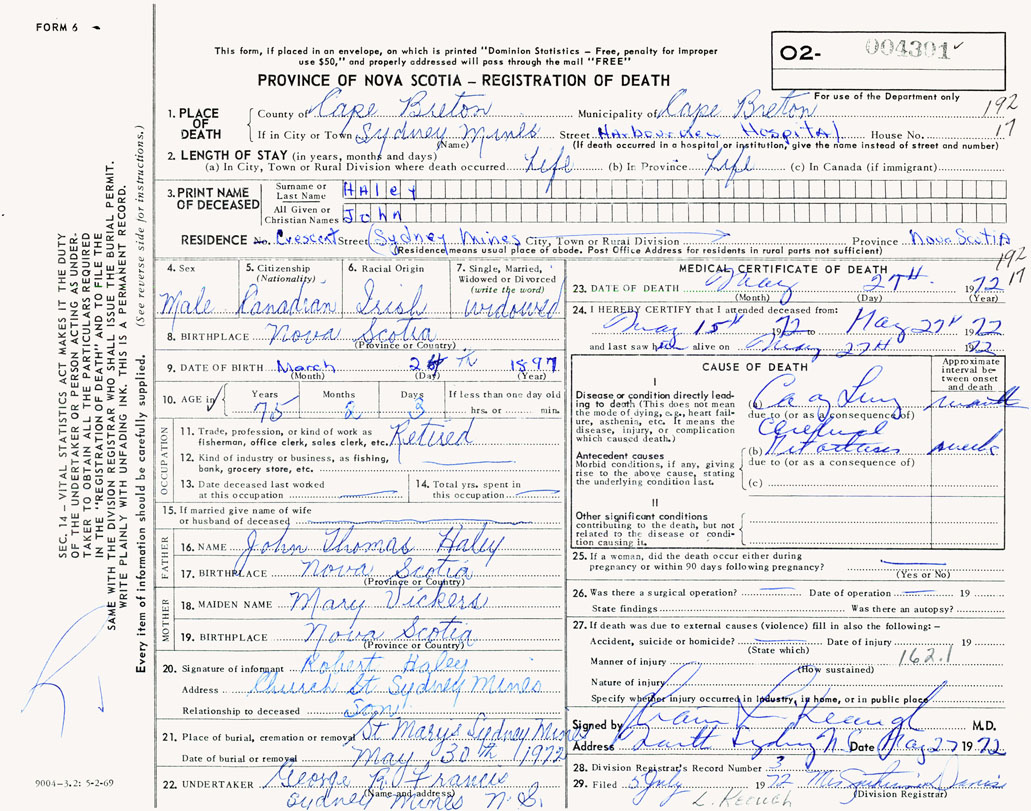 FORM 6
This form, if placed in an envelope, on which is printed "Dominion Statistics – Free, penalty for improper
use $50," and properly addressed will pass through the mail "FREE"
PROVINCE OF NOVA SCOTIA – REGISTRATION OF DEATH
02- 004301
For use of the Department only
192
17
1. PLACE OF DEATH
County of Cape Breton Municipality of Cape Breton
If in City or Town Sydney Mines Street Harbourview Hospital House No.
(Name) (If death occurred in a hospital or institution, give the name instead of street and number)
2. LENGTH OF STAY (in years, months and days)
(a) In City, Town or Rural Division where death occurred Life (b) In Province Life (c) In Canada (if immigrant)
3. PRINT NAME OF DECEASED
Surname or Last Name Haley
All Given or Christian Names John
RESIDENCE No. Crescent Street Sydney Mines City, Town or Rural Division Province Nova Scotia
(Residence means usual place of abode. Post Office Address for residents in rural parts not sufficient)
192
17
4. Sex
Male
5. Citizenship
(Nationality)
Canadian
6. Racial Origin
Irish
7. Single, Married,
Widowed or Divorced
(write the word)
widowed
8. BIRTHPLACE Nova Scotia
(Province or Country)
9. DATE OF BIRTH March 24th 1897
(Month) (Day) (Year)
10. AGE in
Years Months Days If less than one day old
75 2 3 hrs. or min.
OCCUPATION
11. Trade, profession, or kind of work as
fisherman, office clerk, sales clerk, etc. Retired
12. Kind of industry or business, as fishing,
bank, grocery store, etc.
13. Date deceased last worked
at this occupation
14. Total yrs. spent in
this occupation
15. If married give name of wife
or husband of deceased
FATHER
16. NAME John Thomas Haley
17. BIRTHPLACE Nova Scotia
(Province or Country)
MOTHER
18. MAIDEN NAME Mary Vickers
19. BIRTHPLACE Nova Scotia
(Province or Country)
20. Signature of informant Robert Haley
Address Church St Sydney Mines
Relationship to deceased Son
21. Place of burial, cremation or removal St Marys Sydney Mines
Date of burial or removal May 30th 1972
22. UNDERTAKER George R. Francis
(Name and address)
Sydney Mines N.S.
MEDICAL CERTIFICATE OF DEATH
23. DATE OF DEATH May 27th 1972
(Month) (Day) (Year)
24. I HEREBY CERTIFY that I attended deceased from:
May 15th 1972 to May 27th 1972
and last saw him alive on May 27th 1972
CAUSE OF DEATH
Approximate
interval be-
tween onset
and death
I
Disease or condition directly lead-
ing to death (This does not mean
the mode of dying, e.g., heart fail-
ure, asthenia, etc. It means the
disease, injury, or complication
which caused death.)
(a) Ca of Lung month
due to (or as a consequence of)
Cerebral
Antecedent causes
Morbid conditions, if any, giving
rise to the above cause, stating
the underlying condition last.
(b) Metastases week
due to (or as a consequence of)
(c)
II
Other significant conditions
contributing to the death, but not
related to the disease or condi-
tion causing it.
25. If a woman, did the death occur either during
pregnancy or within 90 days following pregnancy?
(Yes or No)
26. Was there a surgical operation? Date of operation 19
State findings Was there an autopsy?
27. If death was due to external causes (violence) fill in also the following: –
Accident, suicide or homicide? Date of injury 19
(State which)
162.1
Manner of injury
(How sustained)
Nature of injury
Specify whether injury occurred in industry, in home, or in public place
Signed by Keough M.D.
Address North Sydney N.S. Date May 27 1972
28. Division Registrar's Record Number 3
29. Filed 5 July 1972 Mrs Davis
(Division Registrar)
L. Keough
SEC. 14 – VITAL STATISTICS ACT MAKES IT THE DUTY
OF THE UNDERTAKER OR PERSON ACTING AS UNDER-
TAKER TO OBTAIN ALL THE PARTICULARS REQUIRED
IN THE "REGISTRATION OF DEATH" AND TO FILE THE
SAME WITH THE DIVISION REGISTRAR WHO SHALL ISSUE THE BURIAL PERMIT.
WRITE PLAINLY WITH UNFADING INK. THIS IS A PERMANENT RECORD.
Every item of information should be carefully supplied. (See reverse side for instructions.)
9004-3.2: 5-2-69